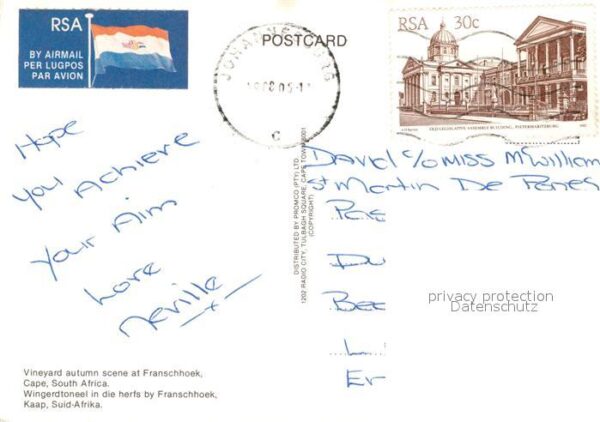 RSA
BY AIRMAIL
PER LUGPOS
PAR AVION
POSTCARD
RSA 30c
OLD LEGISLATIVE ASSEMBLY BUILDING, PIETERMARITZBURG
C
Hope
You Achieve
Your Aim
Love
Neville
x
DISTRIBUTED BY PROMCO (PTY) LTD.
1202 RADIO CITY, TULBAGH SQUARE, CAPE TOWN 8001
(COPYRIGHT)
David c/o Miss McWilliam
St Martin De Porres
Bee
Er
privacy protection
Datenschutz
Vineyard autumn scene at Franschhoek,
Cape, South Africa.
Wingerdtoneel in die herfs by Franschhoek,
Kaap, Suid-Afrika.